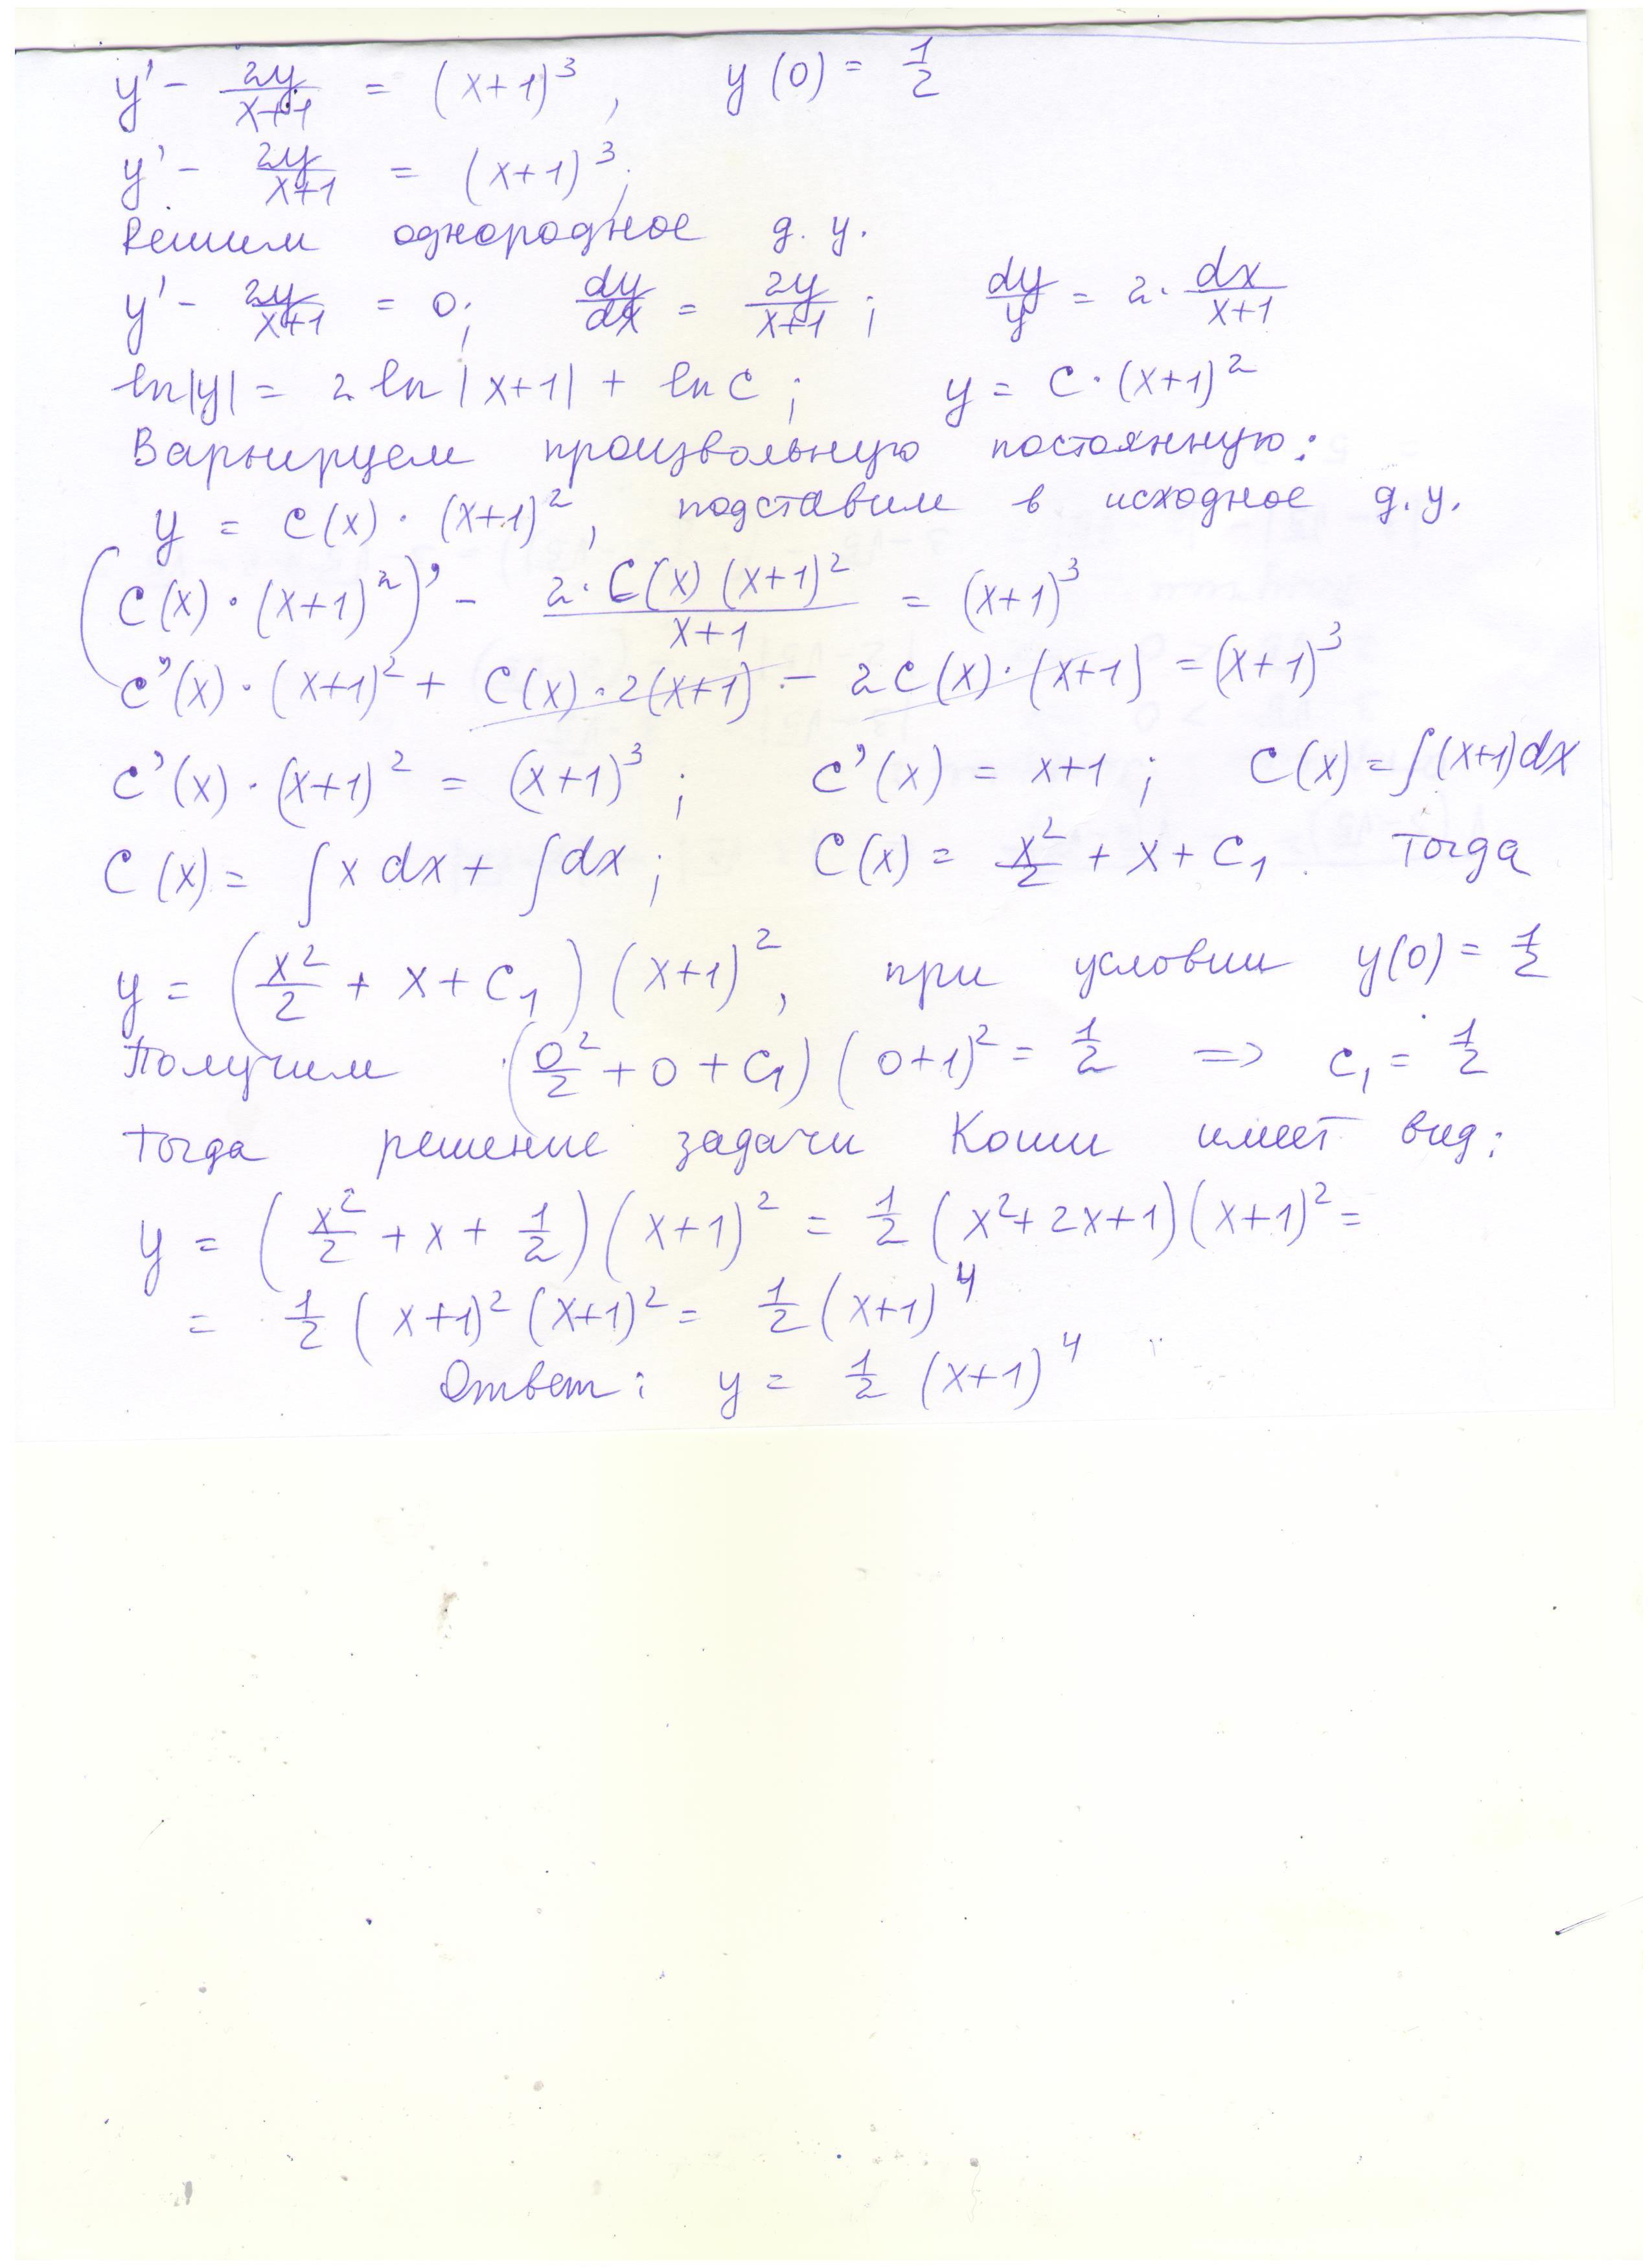 y' - 2y/(x+1) = (x+1)³, y(0) = 1/2
y' - 2y/(x+1) = (x+1)³;
Решим однородное д.у.
y' - 2y/(x+1) = 0; dy/dx = 2y/(x+1); dy/y = 2· dx/(x+1)
ln|y| = 2 ln|x+1| + ln C; y = C·(x+1)²
Варьируем произвольную постоянную:
y = C(x)·(x+1)², подставим в исходное д.у.
(C(x)·(x+1)²)' - 2·C(x)(x+1)²/(x+1) = (x+1)³
C'(x)·(x+1)² + C(x)·2(x+1) - 2C(x)·(x+1) = (x+1)³
C'(x)·(x+1)² = (x+1)³; C'(x) = x+1; C(x) = ∫(x+1)dx
C(x) = ∫x dx + ∫dx; C(x) = x²/2 + x + C₁. Тогда
y = (x²/2 + x + C₁)(x+1)², при условии y(0) = 1/2
Получим (0²/2 + 0 + C₁)(0+1)² = 1/2 => C₁ = 1/2
Тогда решение задачи Коши имеет вид:
y = (x²/2 + x + 1/2)(x+1)² = 1/2 (x²+2x+1)(x+1)² =
= 1/2 (x+1)²(x+1)² = 1/2 (x+1)⁴
Ответ: y = 1/2 (x+1)⁴